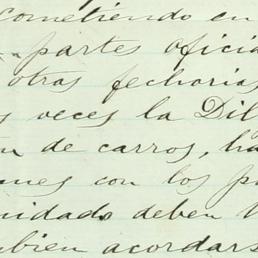 cometiendo en
partes oficia
otras fechorias
s veces la Dil
on de carros, ha
ones con los p
nidado deben
mbien acordars